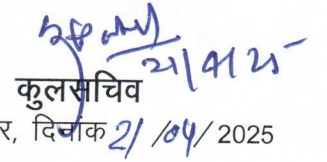 21/4/25
कुलसचिव
र, दिनांक 21/04/2025